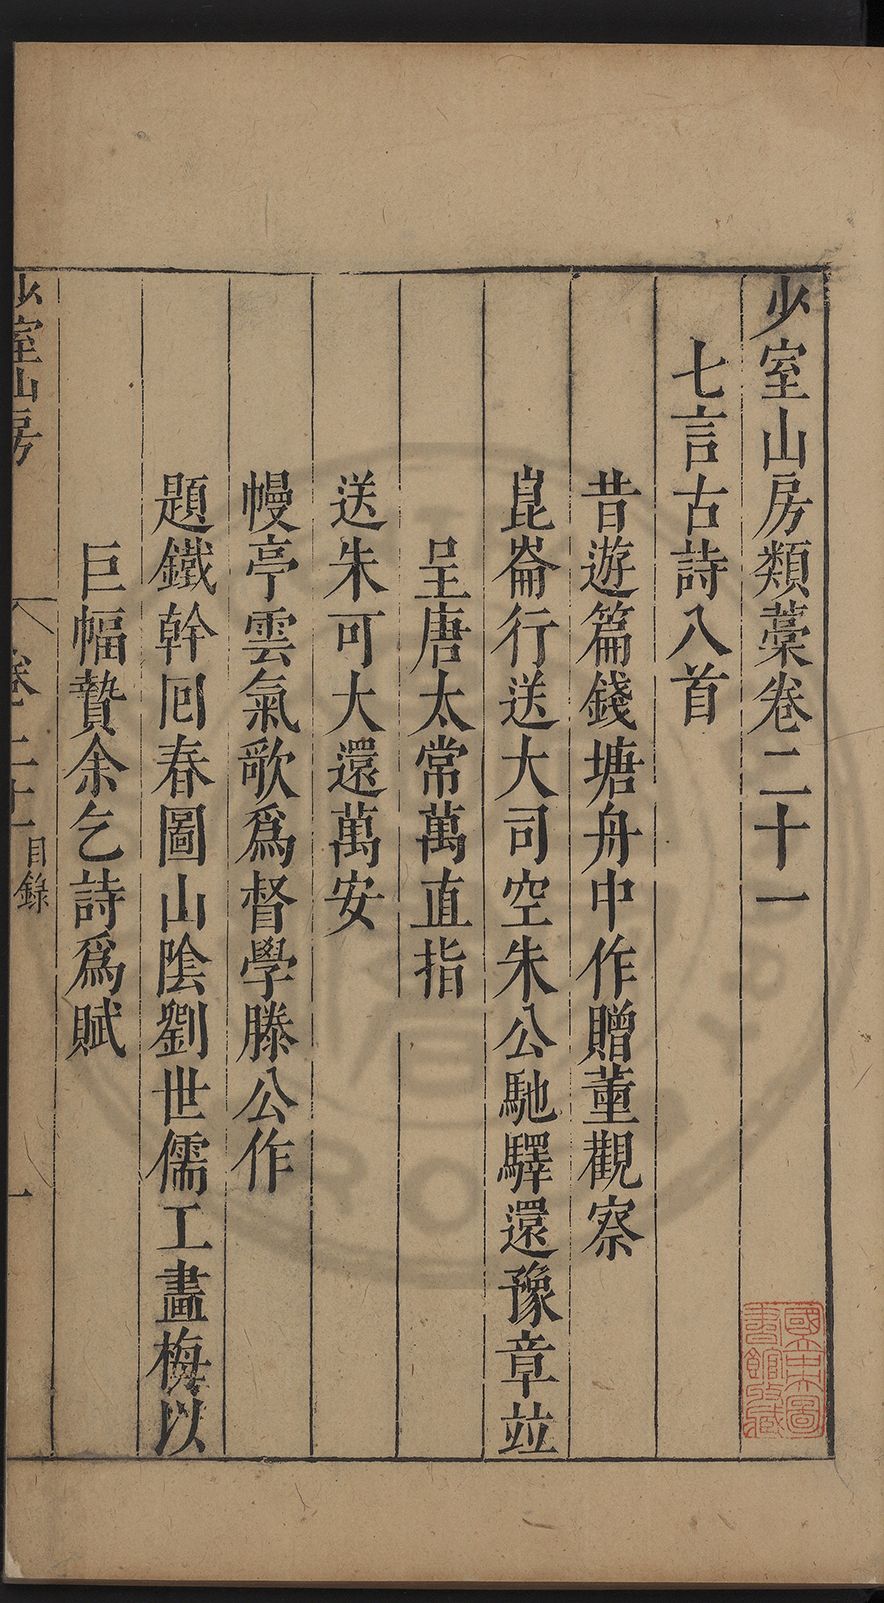 少室山房類藁卷二十一
七言古詩八首
昔遊篇錢塘舟中作贈董觀察
崑崙行送大司空朱公馳驛還豫章並
呈唐太常萬直指
送朱可大還萬安
幔亭雲氣歌爲督學滕公作
題鐵幹囘春圖山陰劉世儒工畫梅以
巨幅贄余乞詩爲賦
少室山房
卷二十一
目錄
一
國立中央圖書館收藏